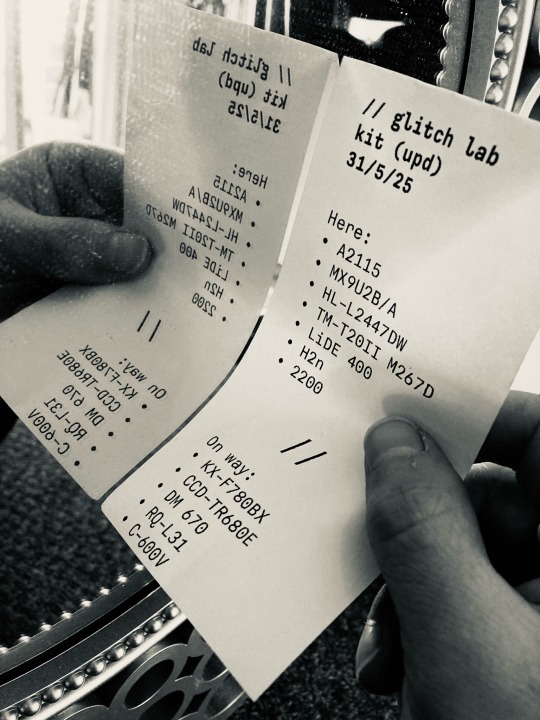 // glitch lab
kit (upd)
31/5/25
Here:
• A2115
• MX9U2B/A
• HL-L2447DW
• TM-T20II M267D
• LiDE 400
• H2n
• 2200
//
On way:
• KX-F780BX
• CCD-TR680E
• DM 670
• RQ-L31
• C-600V
// glitch lab
kit (upd)
31/5/25
Here:
• A2115
• MX9U2B/A
• HL-L2447DW
• TM-T20II M267D
• LiDE 400
• H2n
• 2200
//
On way:
• KX-F780BX
• CCD-TR680E
• DM 670
• RQ-L31
• C-600V